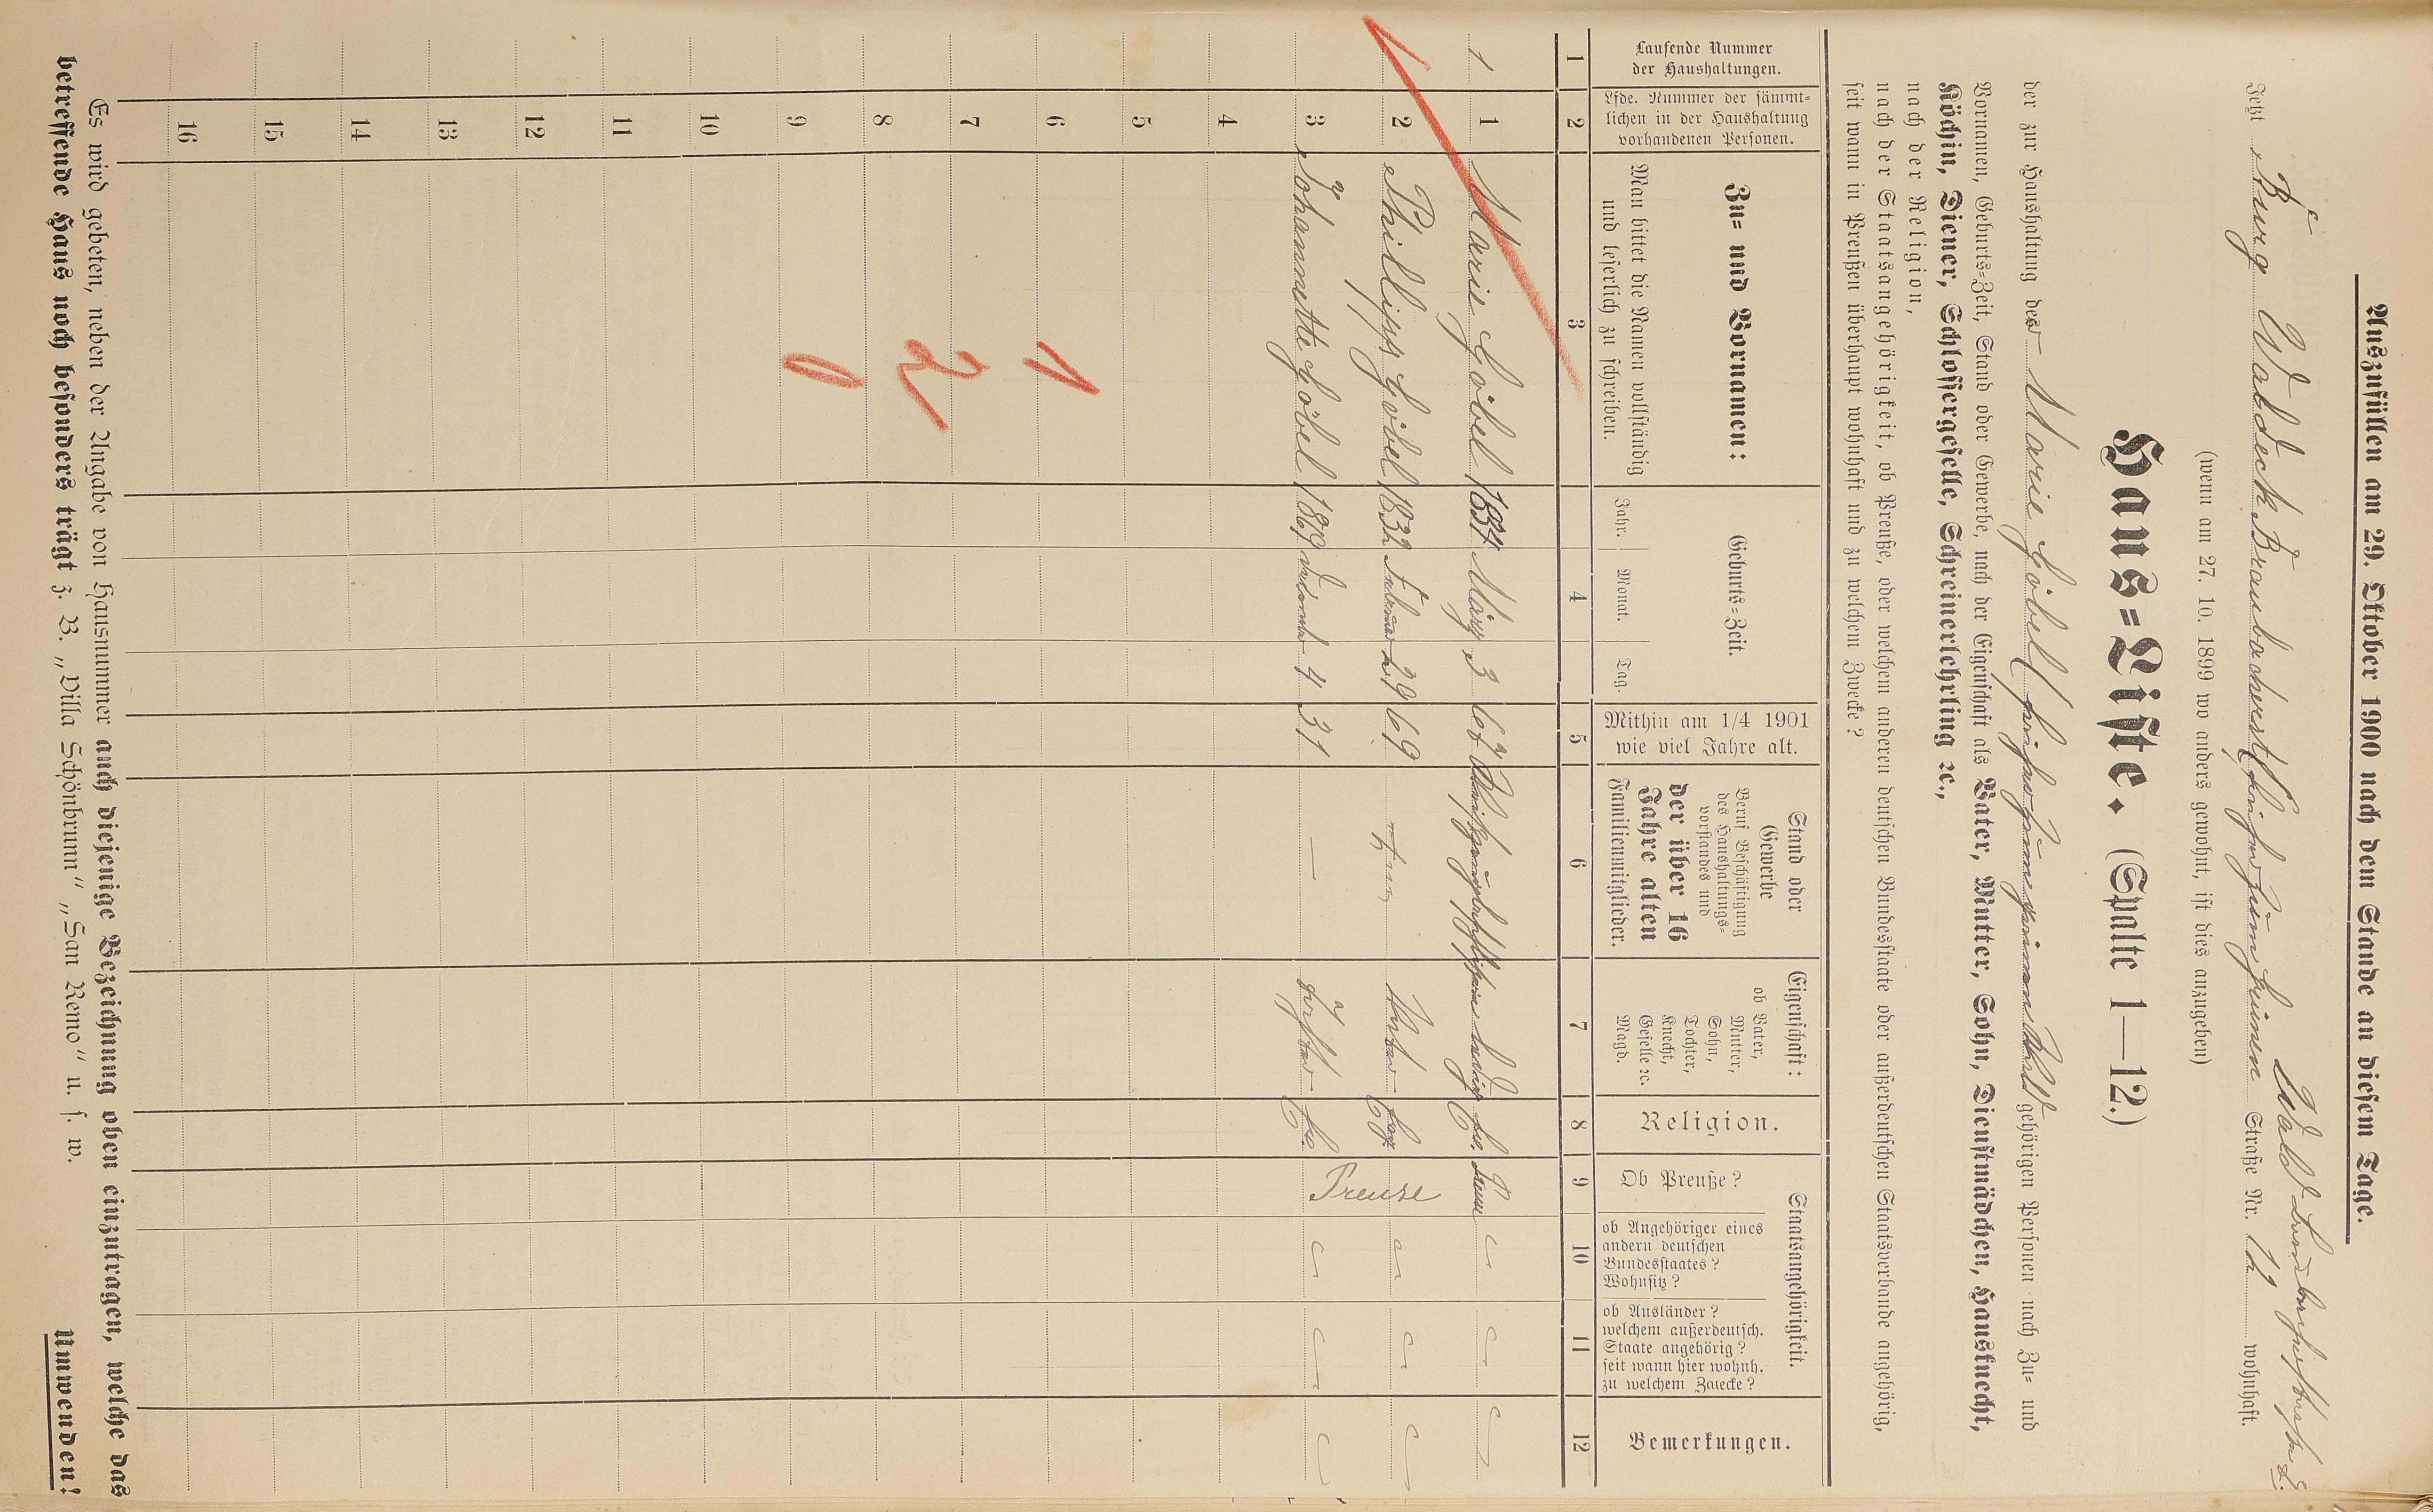 Auszufüllen am 29. Oktober 1900 nach dem Stande an diesem Tage.
Jetzt Burg Waldeck Straße Nr. wohnhaft.
(wenn am 27. 10. 1899 wo anders gewohnt, ist dies anzugeben)
Haus=Liste. (Spalte 1—12.)
der zur Haushaltung der Marie Göbel gehörigen Personen nach Zu= und
Vornamen, Geburts=Zeit, Stand oder Gewerbe, nach der Eigenschaft als Vater, Mutter, Sohn, Dienstmädchen, Hausknecht,
Köchin, Diener, Schlossergeselle, Schreinerlehrling ꝛc.,
nach der Religion,
nach der Staatsangehörigkeit, ob Preuße, oder welchem anderen deutschen Bundesstaate oder außerdeutschen Staatsverbande angehörig,
seit wann in Preußen überhaupt wohnhaft und zu welchem Zwecke?
Laufende Nummer
der Haushaltungen.
Lfde. Nummer der sämmt=
lichen in der Haushaltung
vorhandenen Personen.
Zu= und Vornamen:
Man bittet die Namen vollständig
und leserlich zu schreiben.
Geburts=Zeit.
Jahr. Monat. Tag.
Mithin am 1/4 1901
wie viel Jahre alt.
Stand oder
Gewerbe
Beruf Beschäftigung
des Haushaltungs=
vorstandes und
der über 16
Jahre alten
Familienmitglieder.
Eigenschaft:
ob Vater,
Mutter,
Sohn,
Tochter,
Knecht,
Geselle ꝛc.
Magd.
Religion.
Staatsangehörigkeit.
Ob Preuße?
ob Angehöriger eines
andern deutschen
Bundesstaates?
Wohnsitz?
ob Ausländer?
welchem außerdeutsch.
Staate angehörig?
seit wann hier wohnh.
zu welchem Zwecke?
Bemerkungen.
1 2 3 4 5 6 7 8 9 10 11 12
1 1 Marie Göbel März 3
2 Phillips Göbel 1832 29 69 Ev.
3 Johannette Göbel 1869 4 31 — Ev. Preuse
4
5
6 1
7 2
8
9 0
10
11
12
13
14
15
16
Es wird gebeten, neben der Angabe von Hausnummer auch diejenige Bezeichnung oben einzutragen, welche das
betreffende Haus noch besonders trägt z. B. „Villa Schönbrunn" „San Remo" u. s. w.
Umwenden!